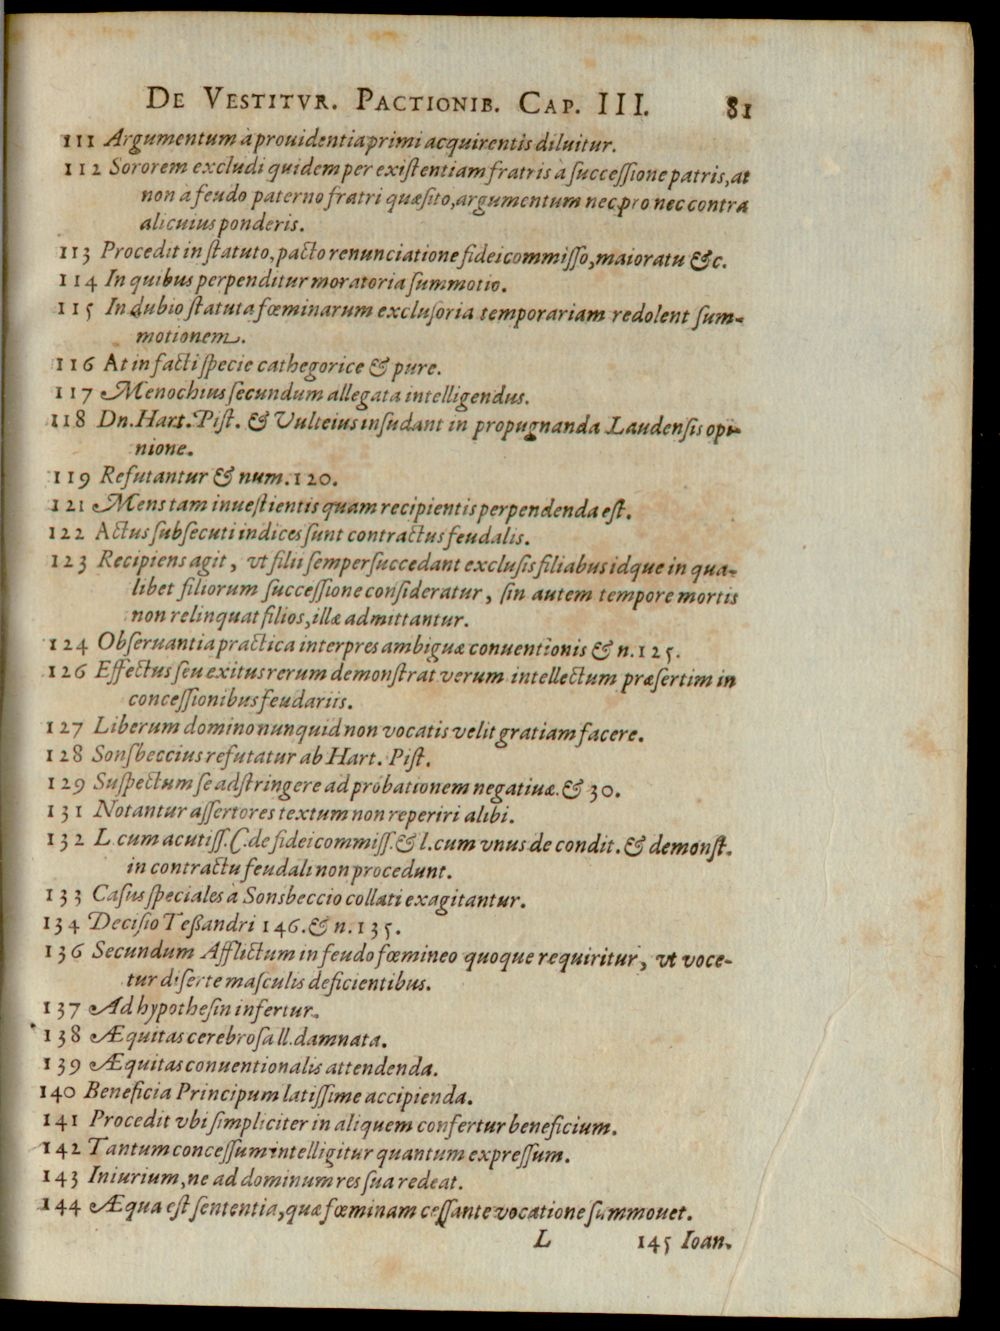 DE VESTITVR. PACTIONIB. CAP. III. 81
111 Argumentum à prouidentia primi acquirentis diluitur.
112 Sororem excludi quidem per exiſtentiam fratris à ſucceſſione patris, at
non à feudo paterno fratri quæſito, argumentum nec pro nec contra
alicuius ponderis.
113 Procedit in ſtatuto, pacto renunciatione fideicommiſſo, maioratu &c.
114 In quibus perpenditur moratoria ſummotio.
115 In dubio ſtatuta fœminarum excluſoria temporariam redolent ſum-
motionem.
116 At in facti ſpecie cathegorice & pure.
117 Menochius ſecundum allegata intelligendus.
118 Dn. Hart. Piſt. & Vulteius inſudant in propugnanda Laudenſis opi-
nione.
119 Refutantur & num. 120.
121 Mens tam inueſtientis quam recipientis perpendenda eſt.
122 Actus ſubſecuti indices ſunt contractus feudalis.
123 Recipiens agit, vt filii ſemper ſuccedant excluſis filiabus idque in qua-
libet filiorum ſucceſſione conſideratur, ſin autem tempore mortis
non relinquat filios, illæ admittantur.
124 Obſeruantia practica interpres ambiguæ conuentionis & n. 125.
126 Effectus ſeu exitus rerum demonſtrat verum intellectum præſertim in
conceſſionibus feudariis.
127 Liberum domino nunquid non vocatis velit gratiam facere.
128 Sonſbeccius refutatur ab Hart. Piſt.
129 Suſpectum ſe adſtringere ad probationem negatiuæ. & 30.
131 Notantur aſſertores textum non reperiri alibi.
132 L. cum acutiſſ. C. de fideicommiſſ. & l. cum vnus de condit. & demonſt.
in contractu feudali non procedunt.
133 Caſus ſpeciales à Sonsbeccio collati exagitantur.
134 Deciſio Teßandri 146. & n. 135.
136 Secundum Afflictum in feudo fœmineo quoque requiritur, vt voce-
tur diſerte maſculis deficientibus.
137 Ad hypotheſin infertur.
138 Æquitas cerebroſa ll. damnata.
139 Æquitas conuentionalis attendenda.
140 Beneficia Principum latiſſime accipienda.
141 Procedit vbi ſimpliciter in aliquem confertur beneficium.
142 Tantum conceſſum intelligitur quantum expreſſum.
143 Iniurium, ne ad dominum res ſua redeat.
144 Æqua eſt ſententia, quæ fœminam ceſſante vocatione ſummouet.
L 145 Ioan.